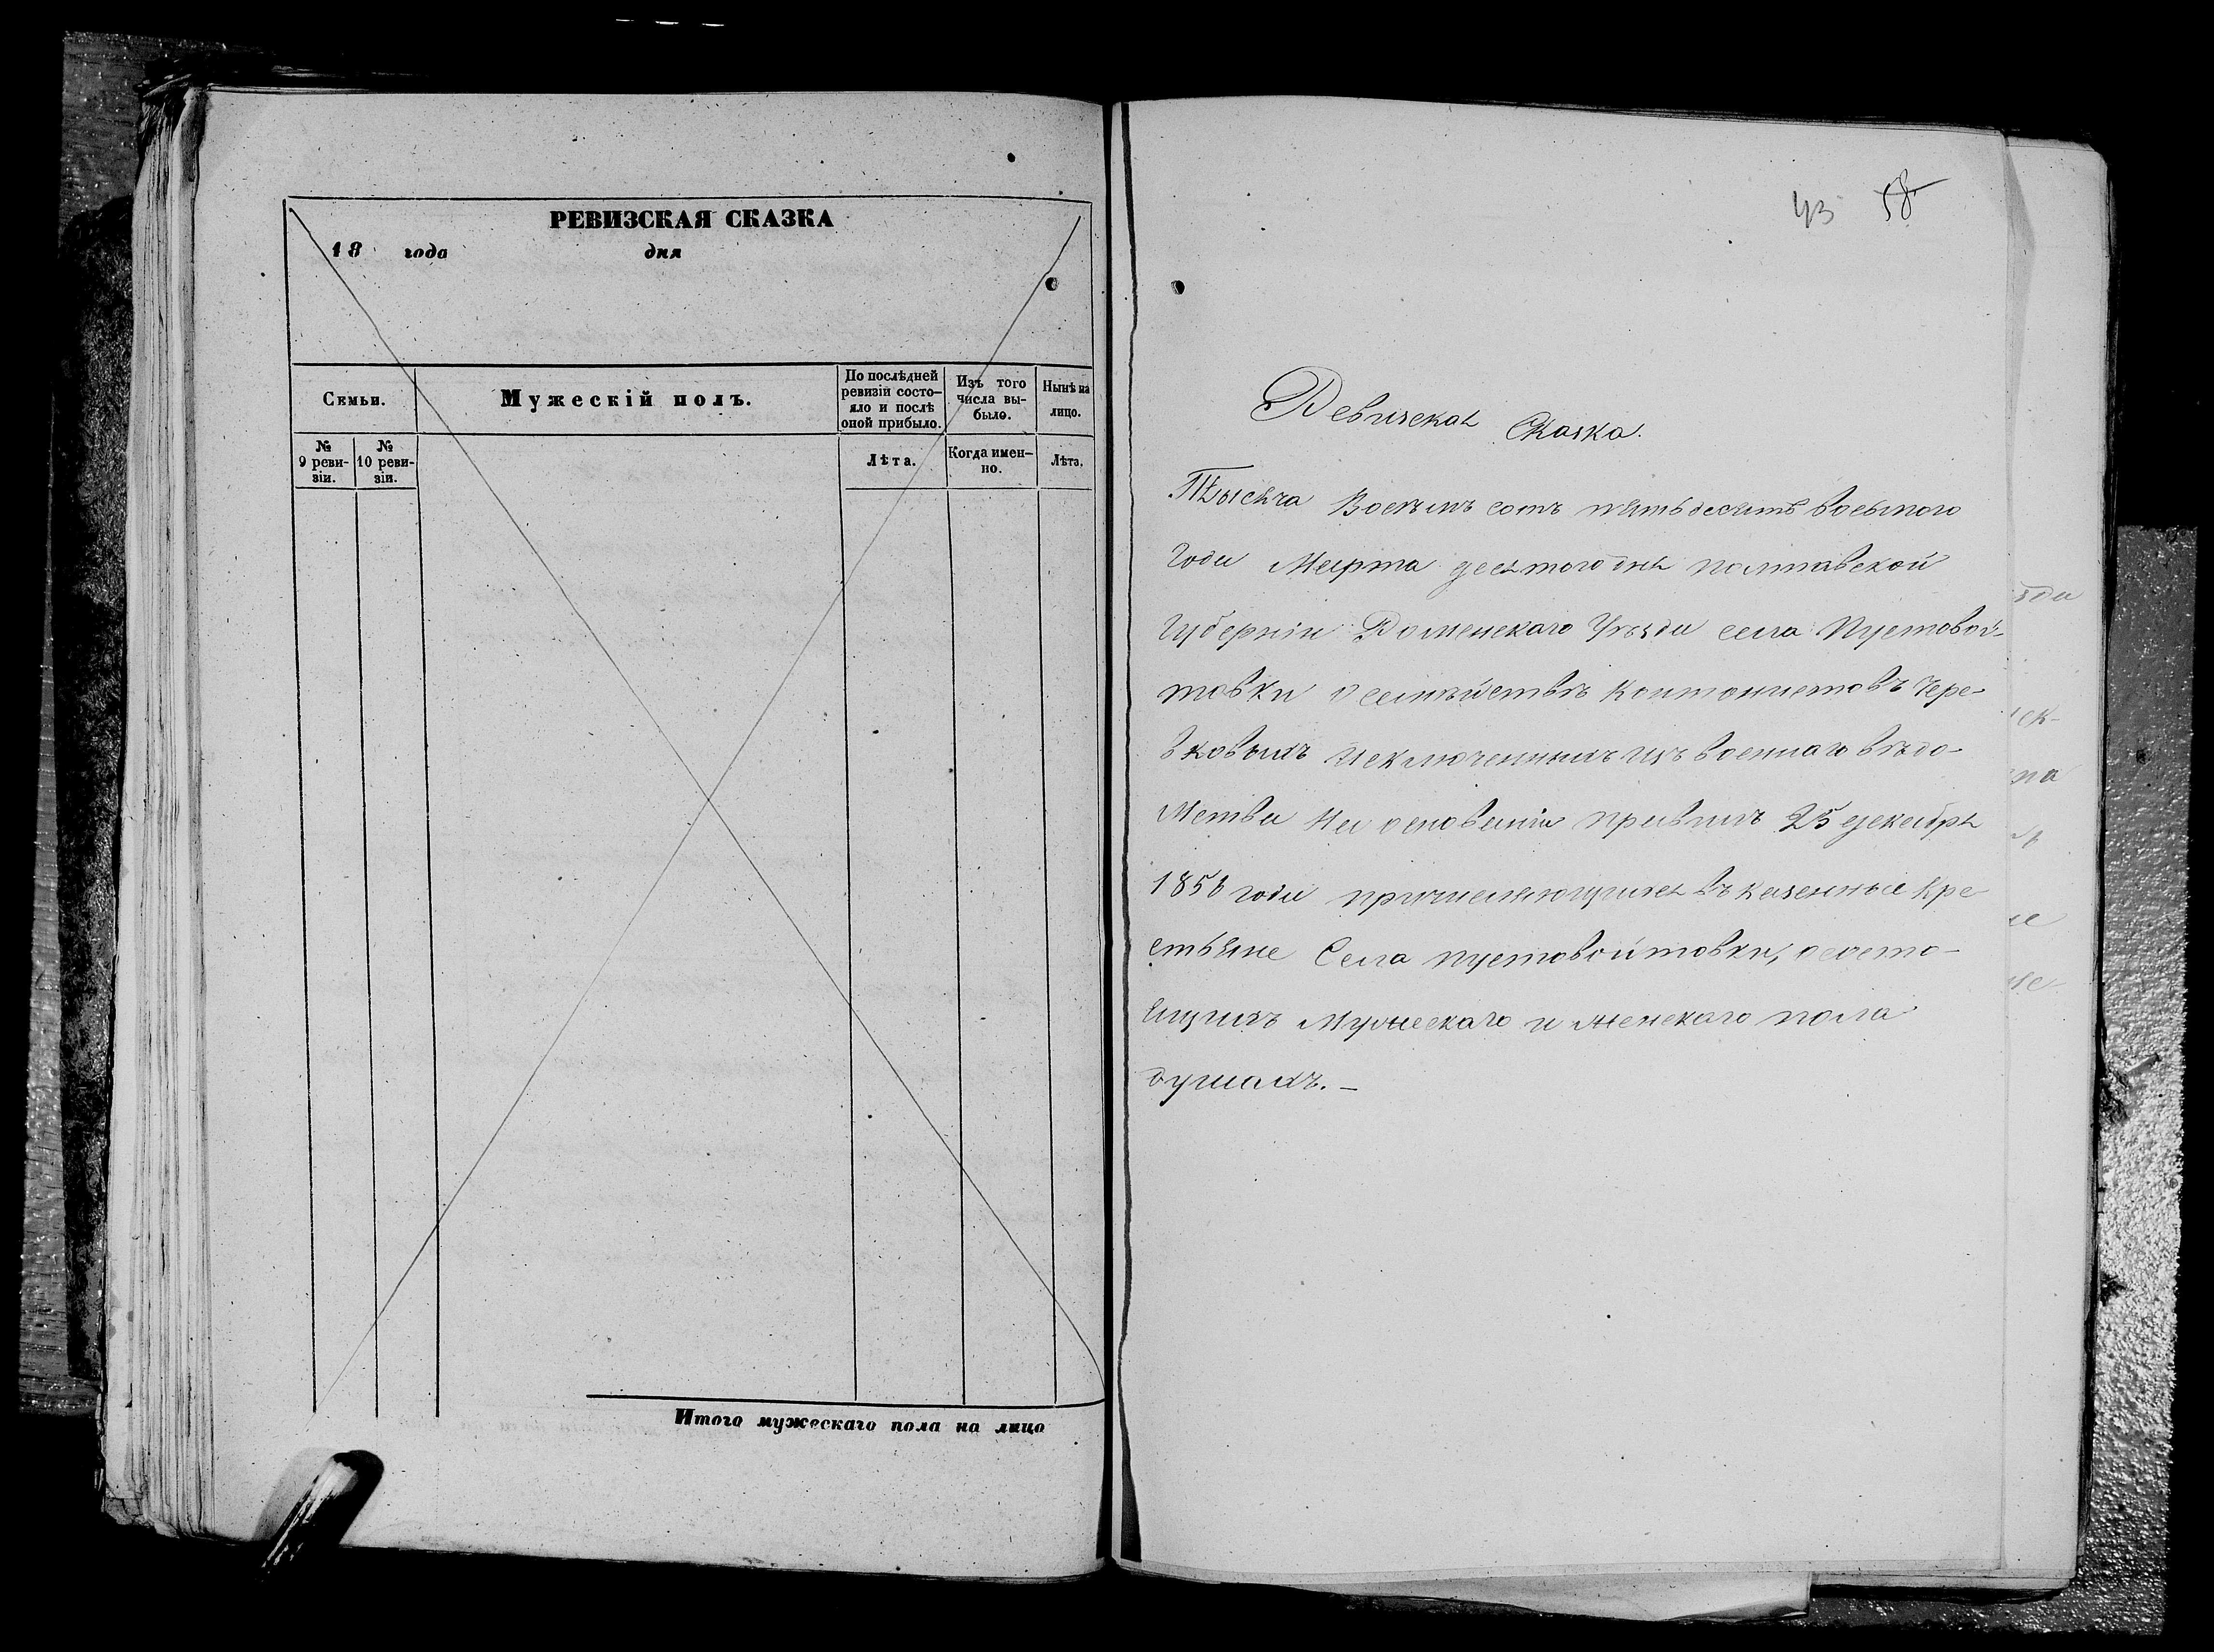 РЕВИЗСКАЯ СКАЗКА
18 года дня
Семьи.
Мужескій полъ.
По послѣдней ревизіи состо-
яло и послѣ оной прибыло.
Изъ того числа вы-
было.
Нынѣ на лицо.
№ 9 реви-
зіи.
№ 10 реви-
зіи.
Лѣта.
Когда имен-
но.
Лѣта.
Итого мужескаго пола на лицо
43 58
Ревизская Сказка.
Тысяча Восемь сотъ пятьдесятъ восьмого
Года Марта десятого дня полтавской
Губерніи Роменскаго Уѣзда села Пустовой-
товки о семѣйствѣ Кантонистовъ Чере-
вковыхъ исключенныхъ изъ военнаго вѣдо-
Мства На основаніи правилъ 25 декабря
1856 года причисляющихся въ казенные кре
стьяне Села пустовойтовки, о состо-
ящихъ Мужескаго и женскаго пола
душахъ. –